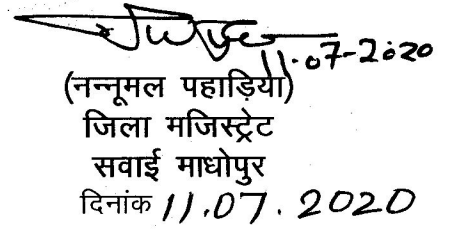 11.07-2020
(नन्नूमल पहाड़िया)
जिला मजिस्ट्रेट
सवाई माधोपुर
दिनांक 11.07.2020